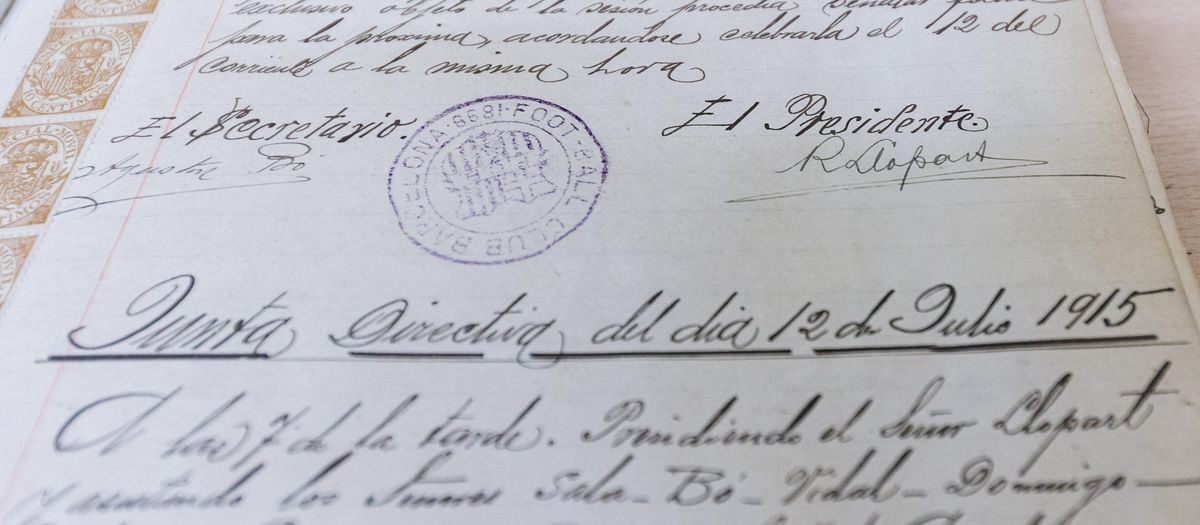 exclusivo objeto de la sesión procedia señalar fecha
para la proxima, acordandose celebrarla el 12 del
corriente a la misma hora
El Secretario.
El Presidente.
Agustin Bó
R Llopart
FOOT-BALL CLUB BARCELONA·1899·
ESPECIAL MOVIL
10 CENTIMOS
ESPECIAL-MOVIL
Junta Directiva del dia 12 de Julio 1915
A las 7 de la tarde. Presidiendo el Señor Llopart
y asistiendo los Señores Sala - Bó - Vidal - Domingo -